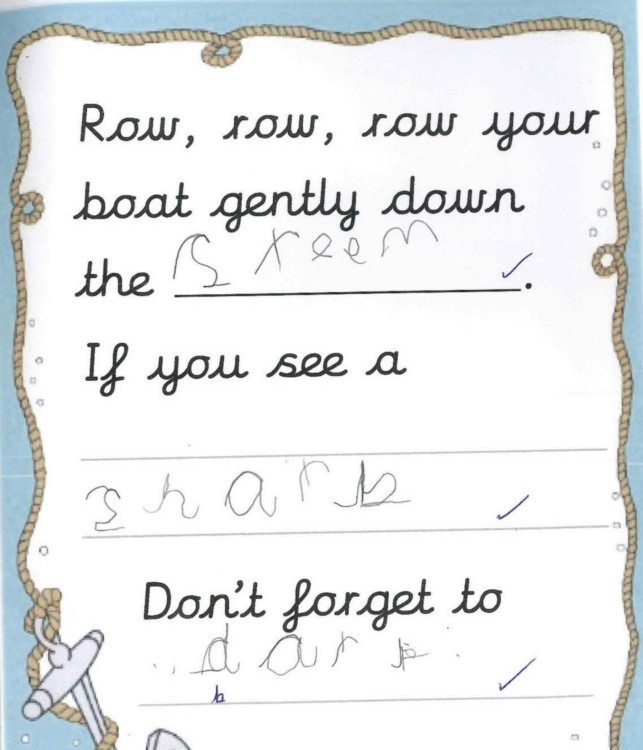 Row, row, row your
boat gently down
the steem.
If you see a
shark
Don't forget to
dark
b